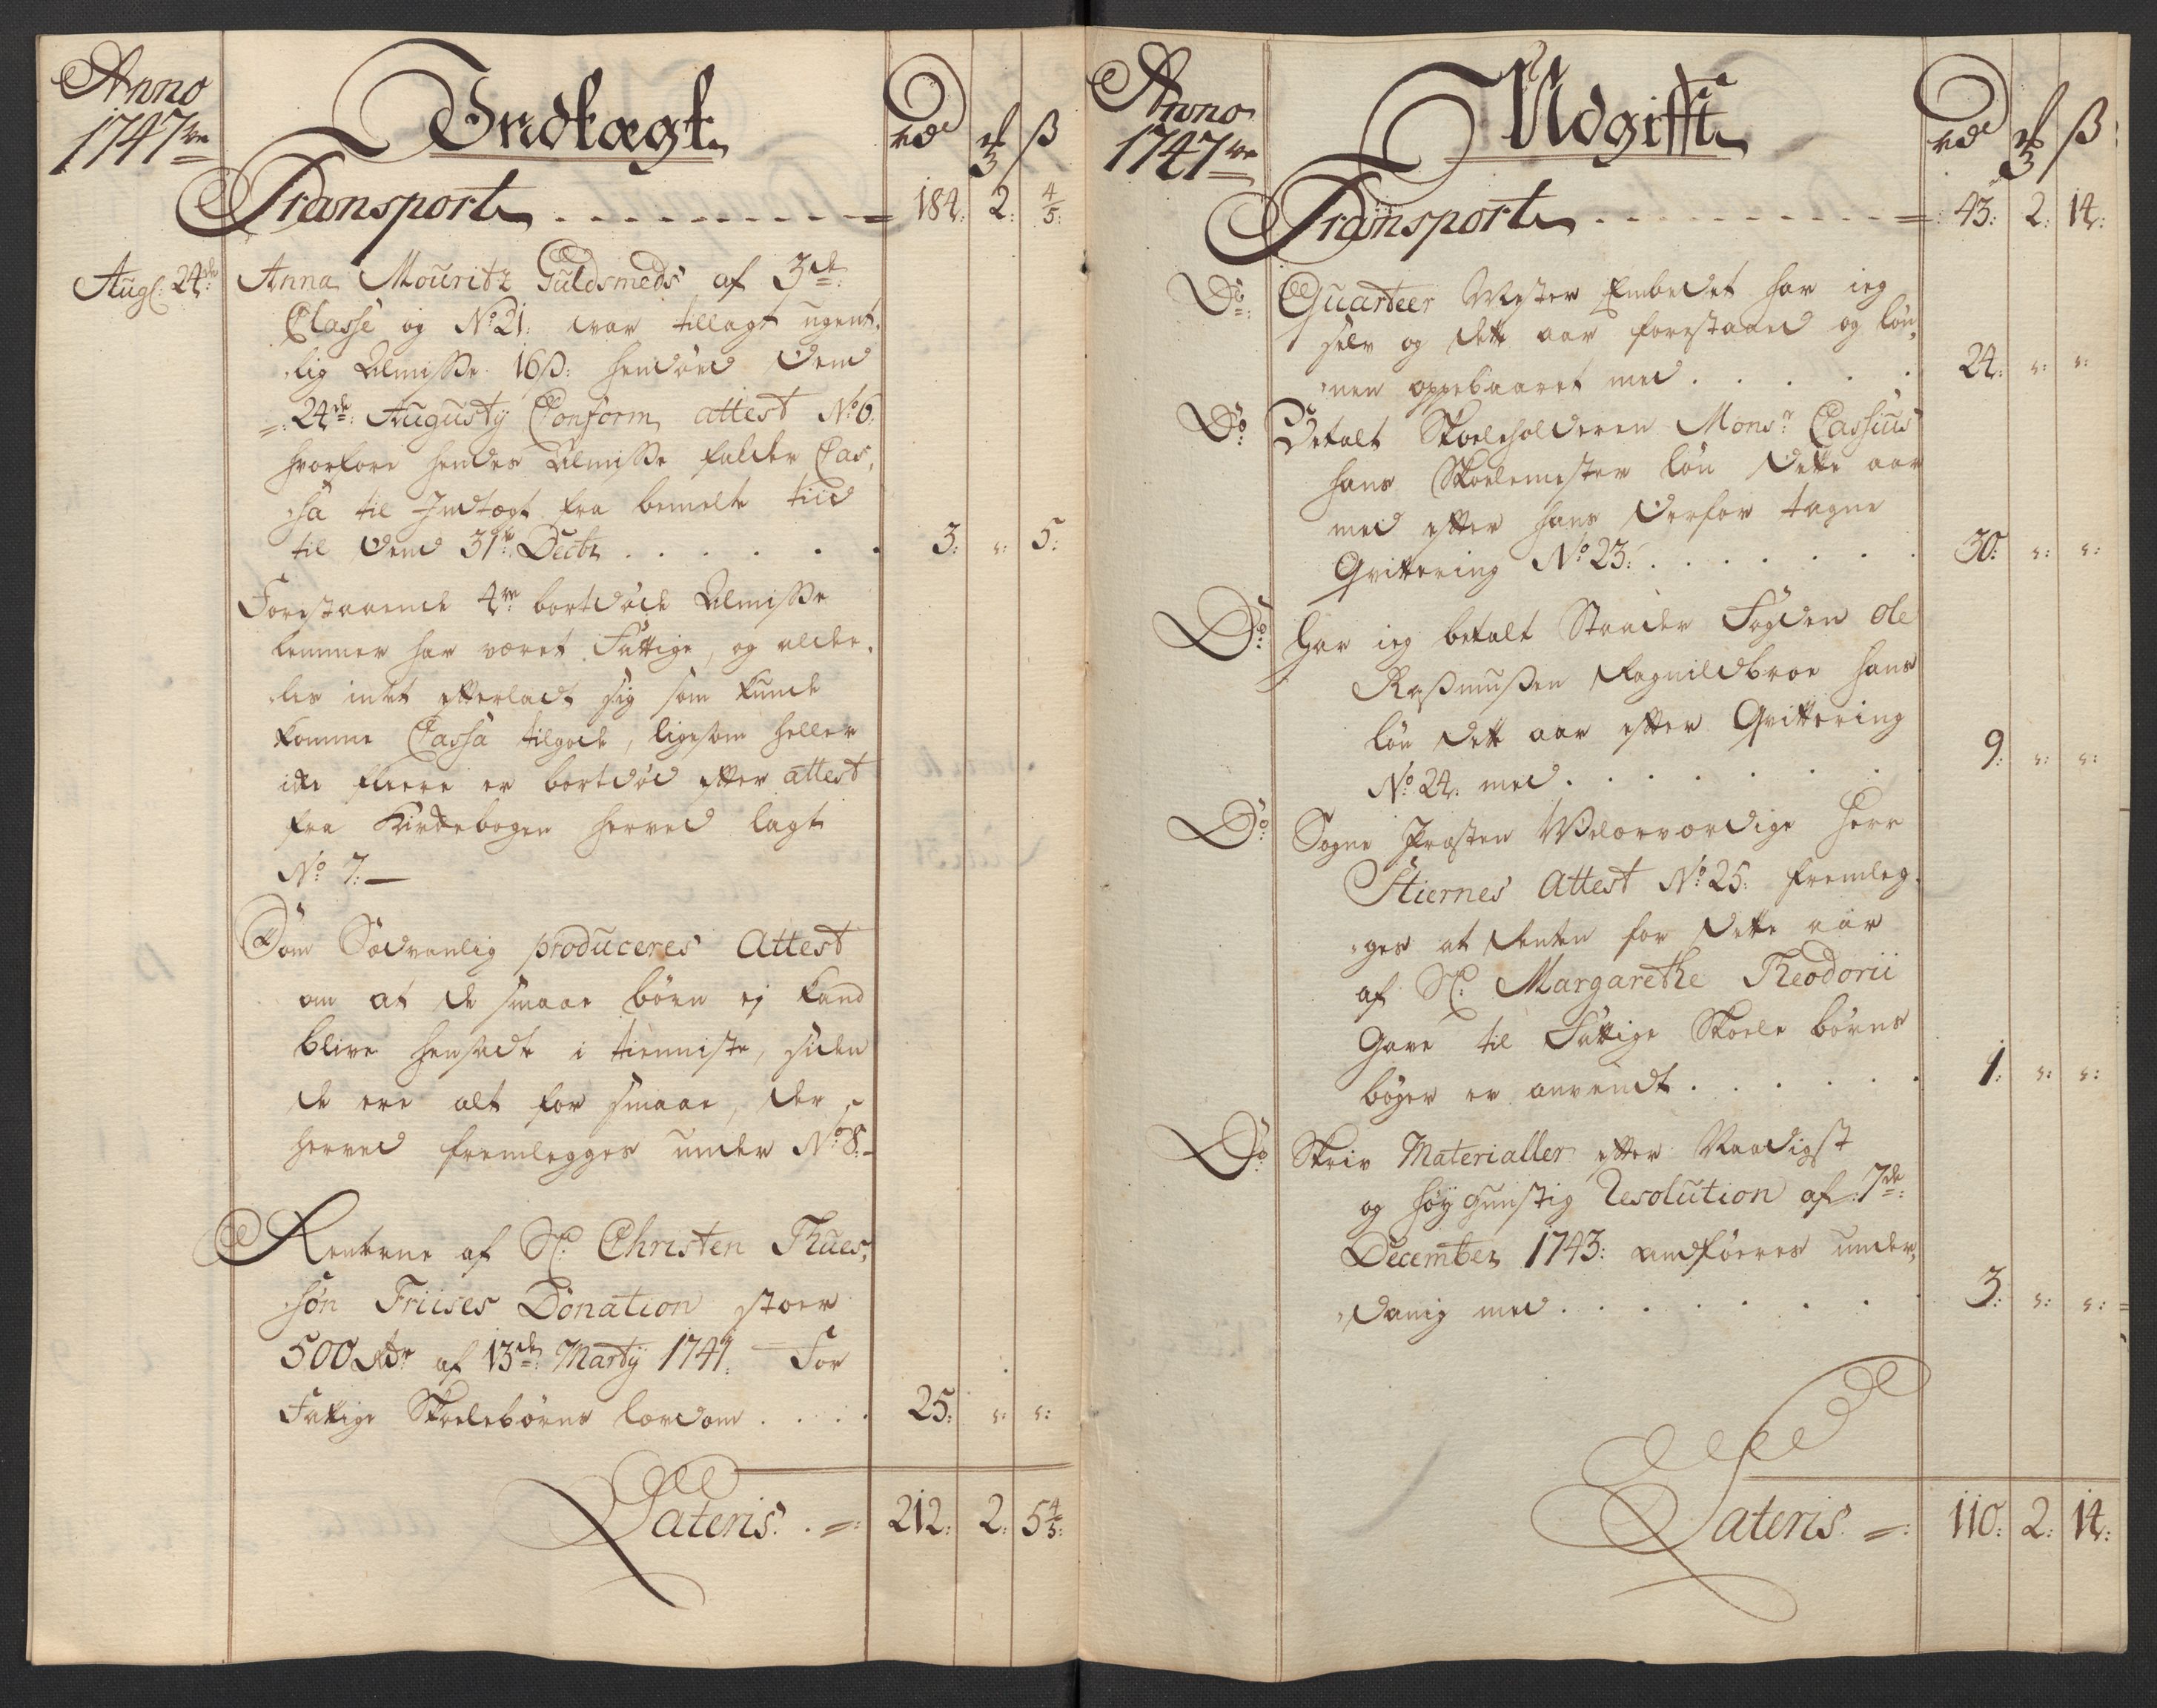 Anno
1747ve
Indtægt
rd mk ß
Transport 184: 2: 4/5:
Augs: 24de Anna Mouritz Guldsmeds af 3de:
Classe og No 21: war tillagt ugent,
lig Almisse 16ß: hendøed dend
24de: Augusty Conform attest No 6:
hvorfore hendes Almisse falder Cas,
sa til Indtægt fra bemelte tiid
til dend 31te: Decbr . . . . . . 3: ": 5:
Forestaaende 4re bortdøde Almisse
lemmer har været Fattige, og alde,
les intet efterladt sig som kunde
komme Cassa tilgode, ligesom heller
icke fleere er bortdød efter attest
fra Kirckebogen herved lagt
No 7: —
Som Sædvanlig produceres Attest
om at de smaae børn ej kand
blive hensadt i tienniste, siden
de ere alt for smaae, der
herved fremlegges under No 8: -
Renterne af Sl: Christen Thues,
søn Friises Donation stoer
500 Rdr af 13de: Marty 1741. For
Fattige Skolebørns lærdom . . . . 25: ": ":
Lateris. 212: 2: 5 4/5:
Anno
1747ve
Udgifft
rd mk ß
Transport 43: 2: 14:
Do: Quarteer Mester Embedet har ieg
selv og dette aar forestaaed og løn,
nen oppebaaret med . . . . . 24: ": ":
Do: Betalt Skoeleholderen Monsr Cassius
hans Skoelemester løn dette aar
med efter hans derfor tagne
Qvittering No 23: . . . . . . 30: ": ":
Do: Har ieg betalt Stader Fogden Ole
Rasmussen Ragnildbroe hans
løn dette aar efter Qvittering
No 24: med . . . . . . 9: ": ":
Do: Sogne Præsten Velærværdige Herr
Stiernes Attest No 25: fremleg,
ges at Renten for dette aar
af Sl: Margarethe Theodorii
Gave til Fattige Skoele børns
bøger er anvendt . . . . . . 1: ": ":
Do: Skriv Materialler efter Naadigst
og høy gunstig Resolution af 7de:
December 1743: anføeres under,
danig med . . . . . . . 3: ": ":
Lateris 110: 2: 14: